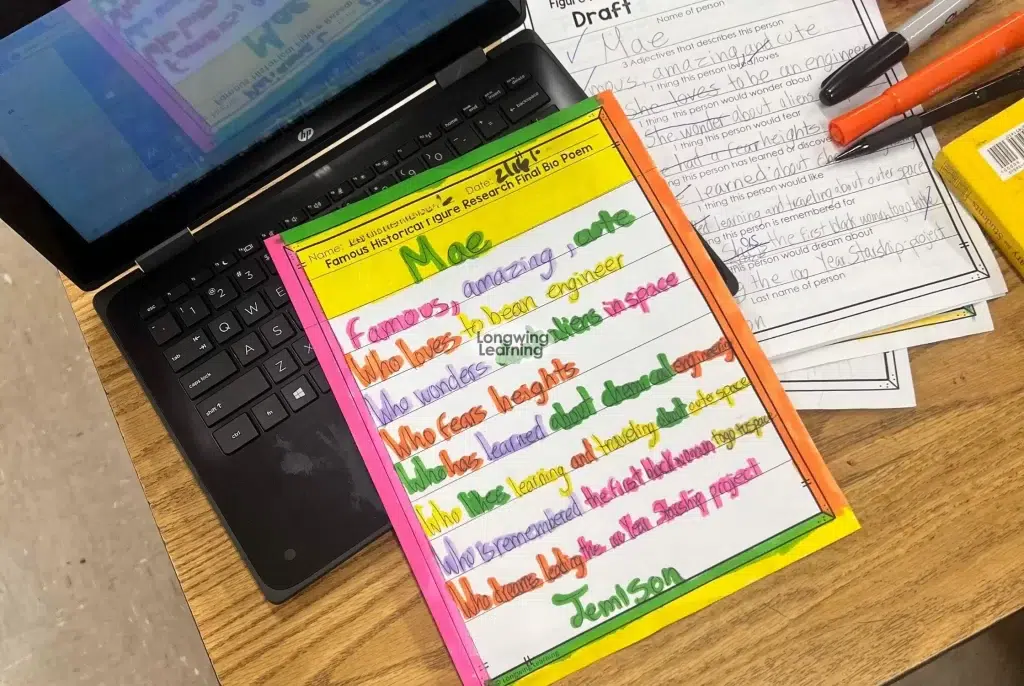 Name: Date: 2/16/
Famous Historical Figure Research Final Bio Poem
Mae
Famous, amazing, cute
Who loves to be an engineer
Who wonders aliens in space
Who fears heights
Who has learned about chemical engineering
Who likes learning and traveling about outer space
Who is remembered the first black woman to go to space
Who dreams leading the 100 Year Starship project
Jemison
Longwing
Learning
Draft
Name of person
Mae
3 Adjectives that describes this person
amazing and cute
1 thing this person loves
she loves to be an engineer
1 thing this person would wonder about
she wonder about aliens
1 thing this person would fear
a fear heights
learned about
1 thing this person would like
learning and traveling about outer space
thing this person is remembered for
the first black woman
this person would dream about
the 100 Year Starship project
Last name of person
hp
esc
tab
caps lock
shift
ctrl
fn
Q W E
A S
Z X
backspace